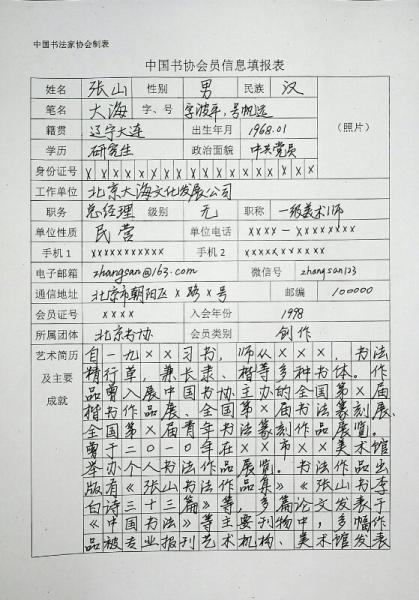 中国书法家协会制表
中国书协会员信息填报表
姓名 张山 性别 男 民族 汉
笔名 大海 字、号 字波平,号帆远
籍贯 辽宁大连 出生年月 1968.01 (照片)
学历 研究生 政治面貌 中共党员
身份证号 X X X X X X X X X X X X X X X X X X
工作单位 北京大海文化发展公司
职务 总经理 级别 无 职称 一级美术师
单位性质 民营 单位电话 XXXX-XXXXXXXX
手机1 XXXXXXXXXXX 手机2 XXXXXXXXXXX
电子邮箱 zhangsan@163.com 微信号 zhangsan123
通信地址 北京市朝阳区X路X号 邮编 100000
会员证号 XXXX 入会年份 1998
所属团体 北京书协 会员类别 创作
艺术简历及主要成就
自一九XX习书,师从XXX,书法
精行草,兼长隶、楷等多种书体。作
品曾入展中国书协主办的全国第X届
楷书作品展、全国第X届书法篆刻展、
全国第X届青年书法篆刻作品展览。
曾于二〇一〇年在XX市XX美术馆
举办个人书法作品展览。书法作品出
版有《张山书法作品集》《张山书李
白诗三十三篇》等,多篇论文发表于
《中国书法》等主要刊物中,多幅作
品被专业报刊艺术机构、美术馆发表